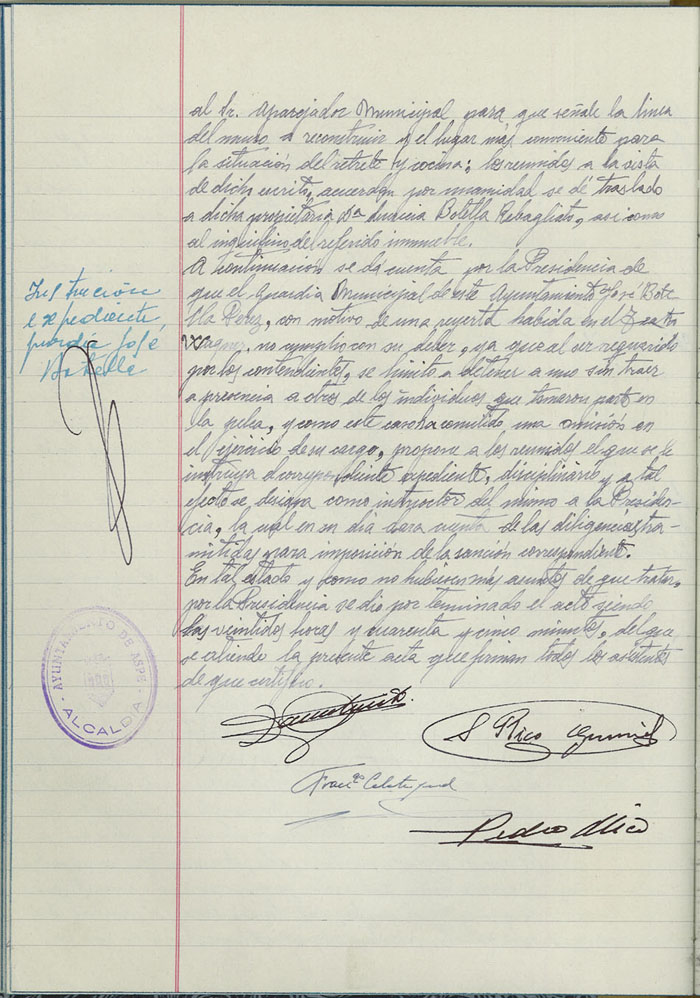 al Sr. Aparejador Municipal para que señale la linea
del muro a reconstruir y el lugar más conveniente para
la situación del retrete y cocina; los reunidos a la vista
de dicho escrito, acuerdan por unanimidad se dé traslado
a dicha propietaria Dª Lucia Botella Rebagliato, asi como
al inquilino del referido inmueble.
A continuacion se da cuenta por la Presidencia de
que el Guardia Municipal de este Ayuntamiento José Bote
lla Perez, con motivo de una reyerta habida en el
no cumplio con su deber, ya que al ser requerido
por los contendientes, se limitó a detener a uno sin traer
a presencia a otros de los individuos que tomaron parte en
la pelea, y como este caso ha cometido una omisión en
el ejercicio de su cargo, propone a los reunidos el que se le
instruya el correspondiente expediente, disciplinario y a tal
efecto se designa como instructor del mismo a la Presiden-
cia, la cual en su dia dara cuenta de las diligencias tra-
mitidas para imposición de la sanción correspondiente.
En tal estado y como no hubiesen más asuntos de que tratar,
por la Presidencia se dio por terminado el acto siendo
las veintidos horas y cuarenta y cinco minutos, del que
se extiende la presente acta que firman todos los asistentes
de que certifico.
Instrucción
expediente,
guardia José
Botella
AYUNTAMIENTO DE ASPE
ALCALDIA
S Rico
Franco Calatayud
Pedro Mico